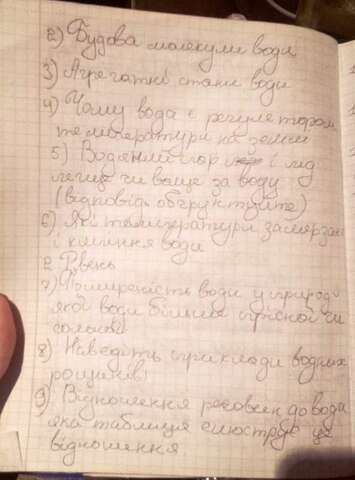 2) Будова молекули води
3) Агрегатні стани води
4) Чому вода є регулятором
температури на землі
5) Водяний пар і лід
легше чи важче за воду
(відповідь обгрунтуйте)
6) Які температури замерзан
і кипіння води
2 Рівень
7) Поширеність води у природі
якої води більше прісної чи
солоної
8) Наведіть приклади водних
розчинів
9) Відношення речовин до води
яка таблиця ілюструє це
відношення